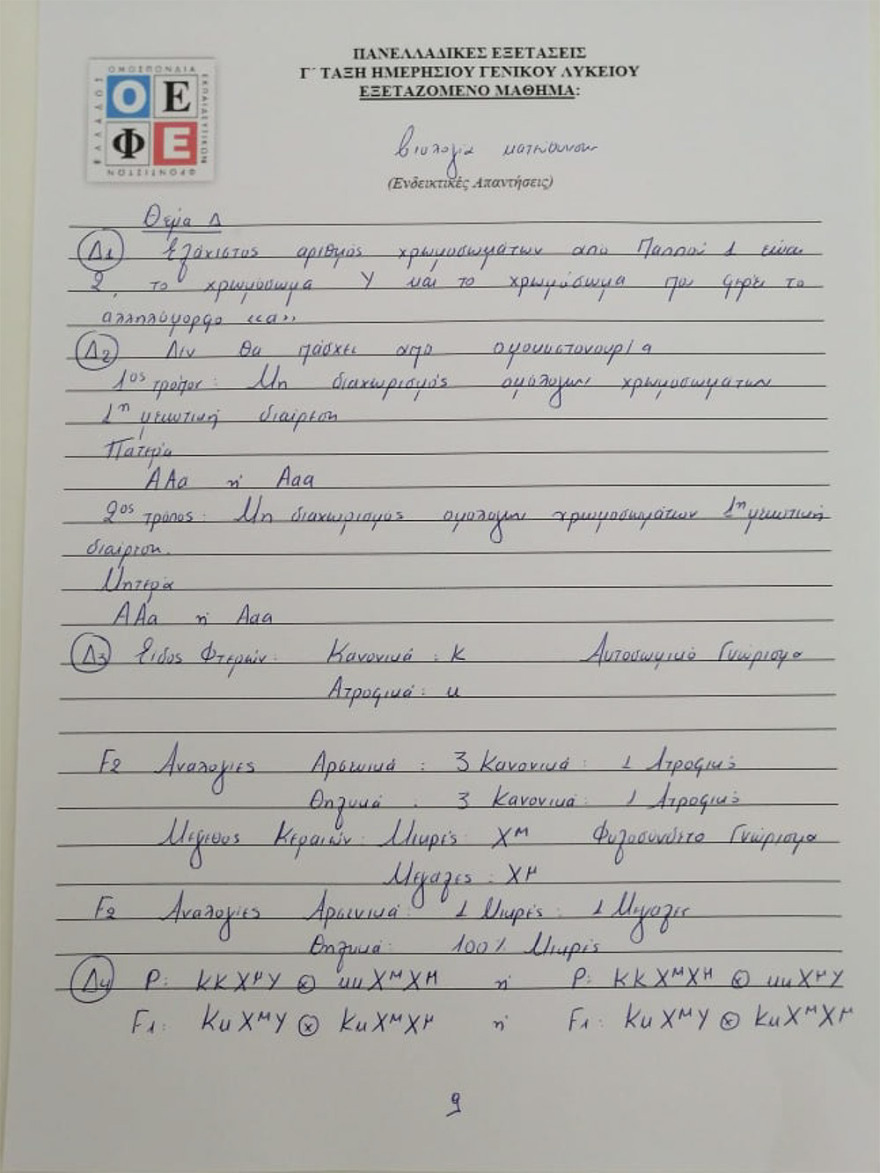 ΟΜΟΣΠΟΝΔΙΑ
ΕΚΠΑΙΔΕΥΤΙΚΩΝ
ΦΡΟΝΤΙΣΤΩΝ
ΕΛΛΑΔΟΣ
Ο Ε
Φ Ε
ΠΑΝΕΛΛΑΔΙΚΕΣ ΕΞΕΤΑΣΕΙΣ
Γ΄ ΤΑΞΗ ΗΜΕΡΗΣΙΟΥ ΓΕΝΙΚΟΥ ΛΥΚΕΙΟΥ
ΕΞΕΤΑΖΟΜΕΝΟ ΜΑΘΗΜΑ:
Βιολογία κατεύθυνση
(Ενδεικτικές Απαντήσεις)
Θέμα Δ
Δ1 Ελάχιστος αριθμός χρωμοσωμάτων από Παππού 1 είναι
2, το χρωμόσωμα Υ και το χρωμόσωμα που φέρει το
αλληλόμορφο «α»
Δ2 Δεν θα πάσχει από ομοκυστονουρία
1ος τρόπος: Μη διαχωρισμός ομόλογων χρωμοσωμάτων
1η μειωτική διαίρεση
Πατέρα
ΑΑα ή Ααα
2ος τρόπος: Μη διαχωρισμός ομόλογων χρωμοσωμάτων 1η μειωτική
διαίρεση.
Μητέρα
ΑΑα ή Ααα
Δ3 Είδος Φτερών: Κανονικά: Κ Αυτοσωμικό Γνώρισμα
Ατροφικά: κ
F2 Αναλογίες Αρσενικά: 3 Κανονικά: 1 Ατροφικό
Θηλυκά: 3 Κανονικά: 1 Ατροφικό
Μέγεθος Κεραιών: Μικρές: Χᴹ Φυλοσύνδετο Γνώρισμα
Μεγάλες: Χᵘ
F2 Αναλογίες Αρσενικά: 1 Μικρές: 1 Μεγάλες
Θηλυκά: 100% Μικρές
Δ4 P: ΚΚΧᵘΥ ⊗ κκΧᴹΧᴹ ή P: ΚΚΧᴹΧᴹ ⊗ κκΧᵘΥ
F1: ΚκΧᴹΥ ⊗ ΚκΧᴹΧᵘ ή F1: ΚκΧᴹΥ ⊗ ΚκΧᴹΧᵘ
9